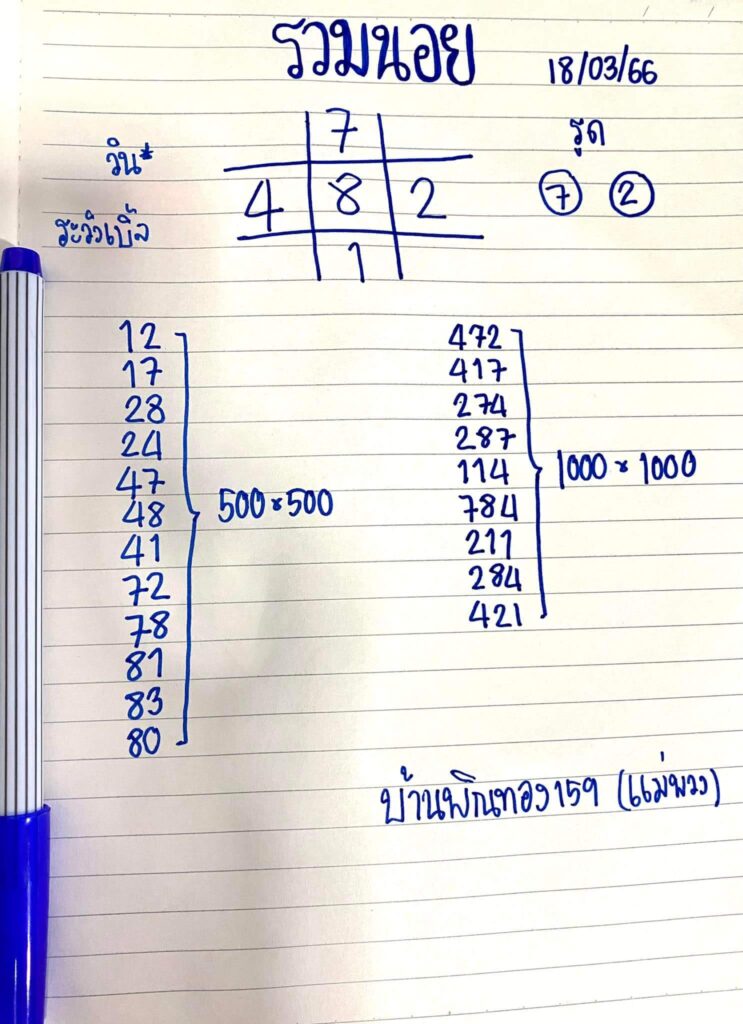 รวมนอย
18/03/66
วิน*
7
4 8 2
1
ระวังเบิ้ล
รูด
7 2
12
17
28
24
47
48
41
72
78
81
83
80
500 × 500
472
417
274
287
114
784
211
284
421
1000 × 1000
บ้านพิณทอง 159 (แม่พวง)